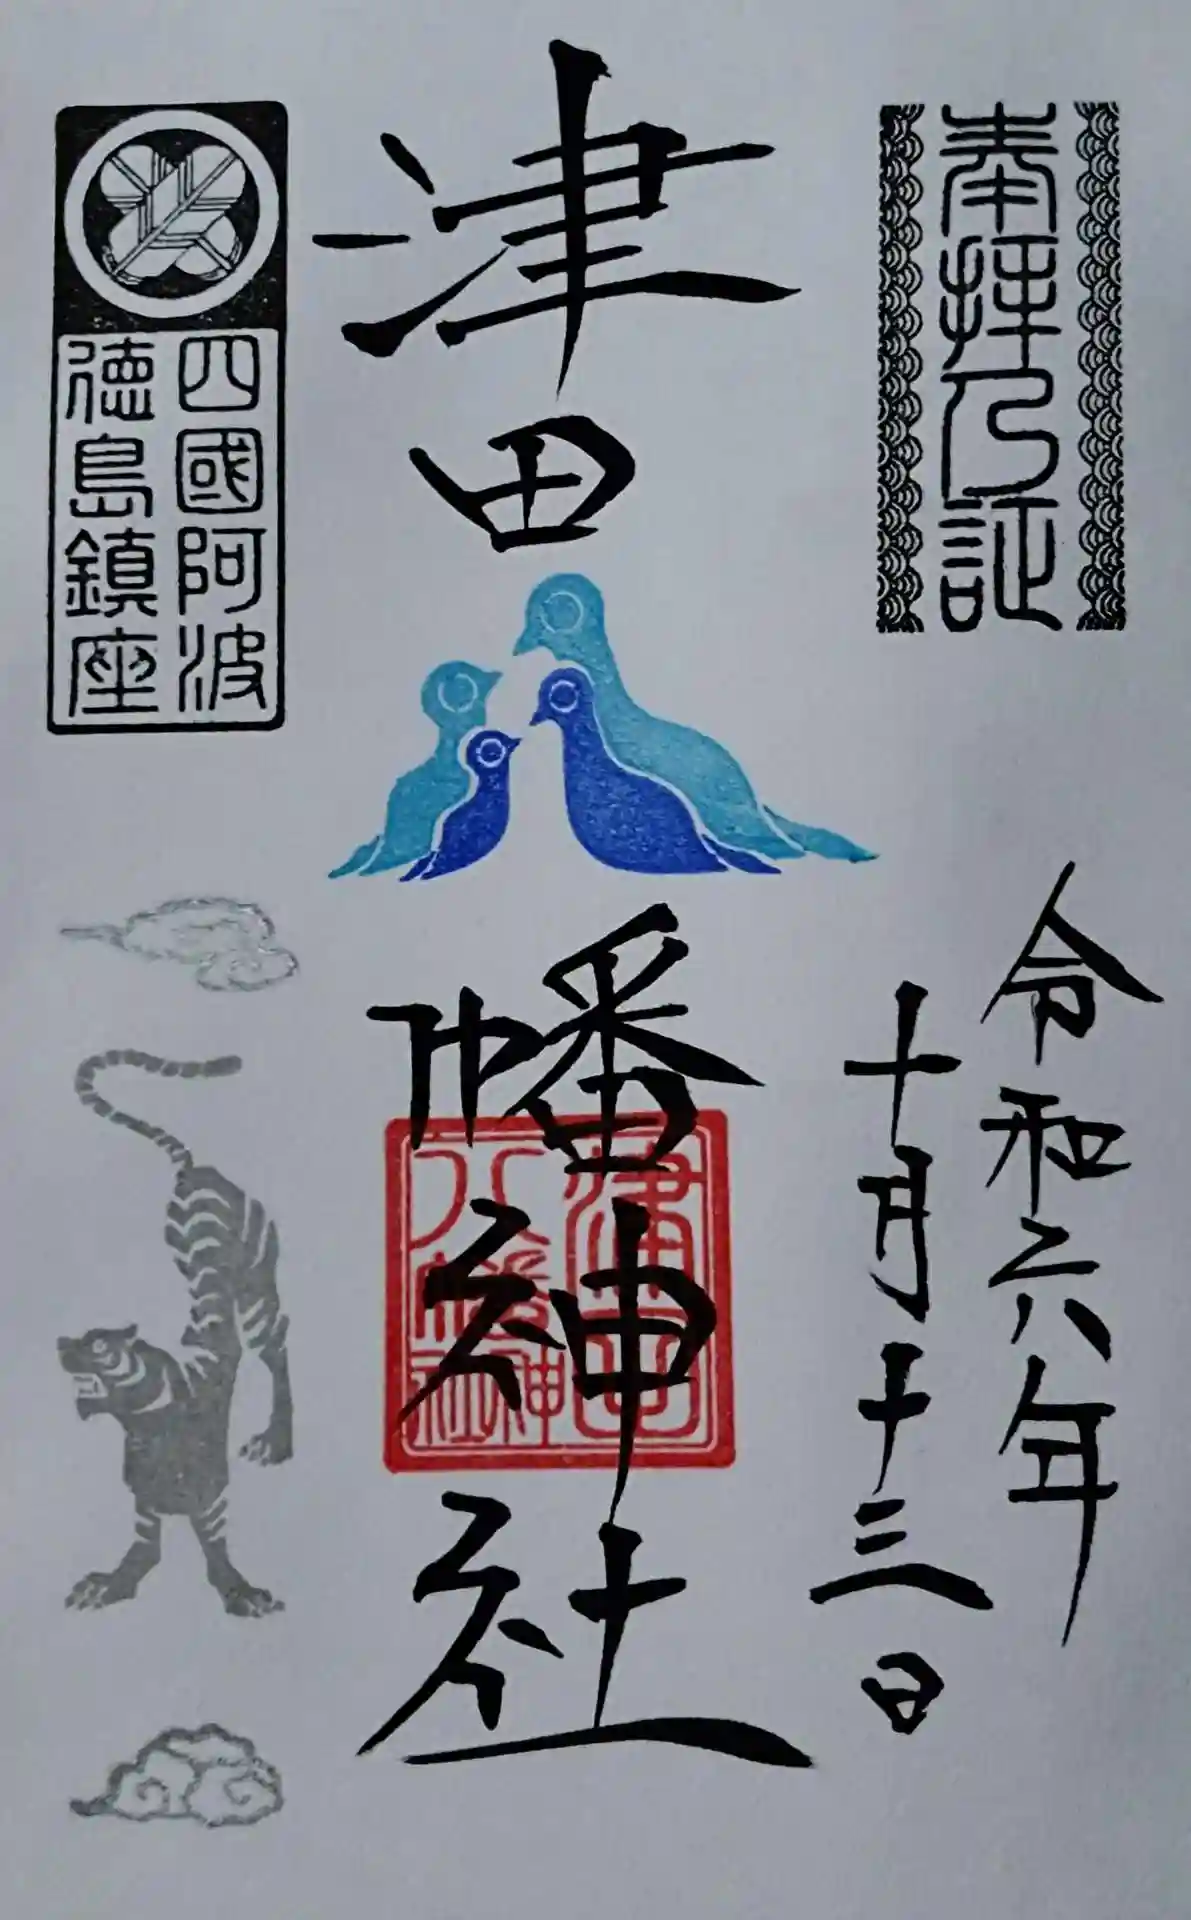 奉拝之証
令和六年
十月十三日
津田八幡神社
津田
八幡神社
四國阿波
徳島鎮座